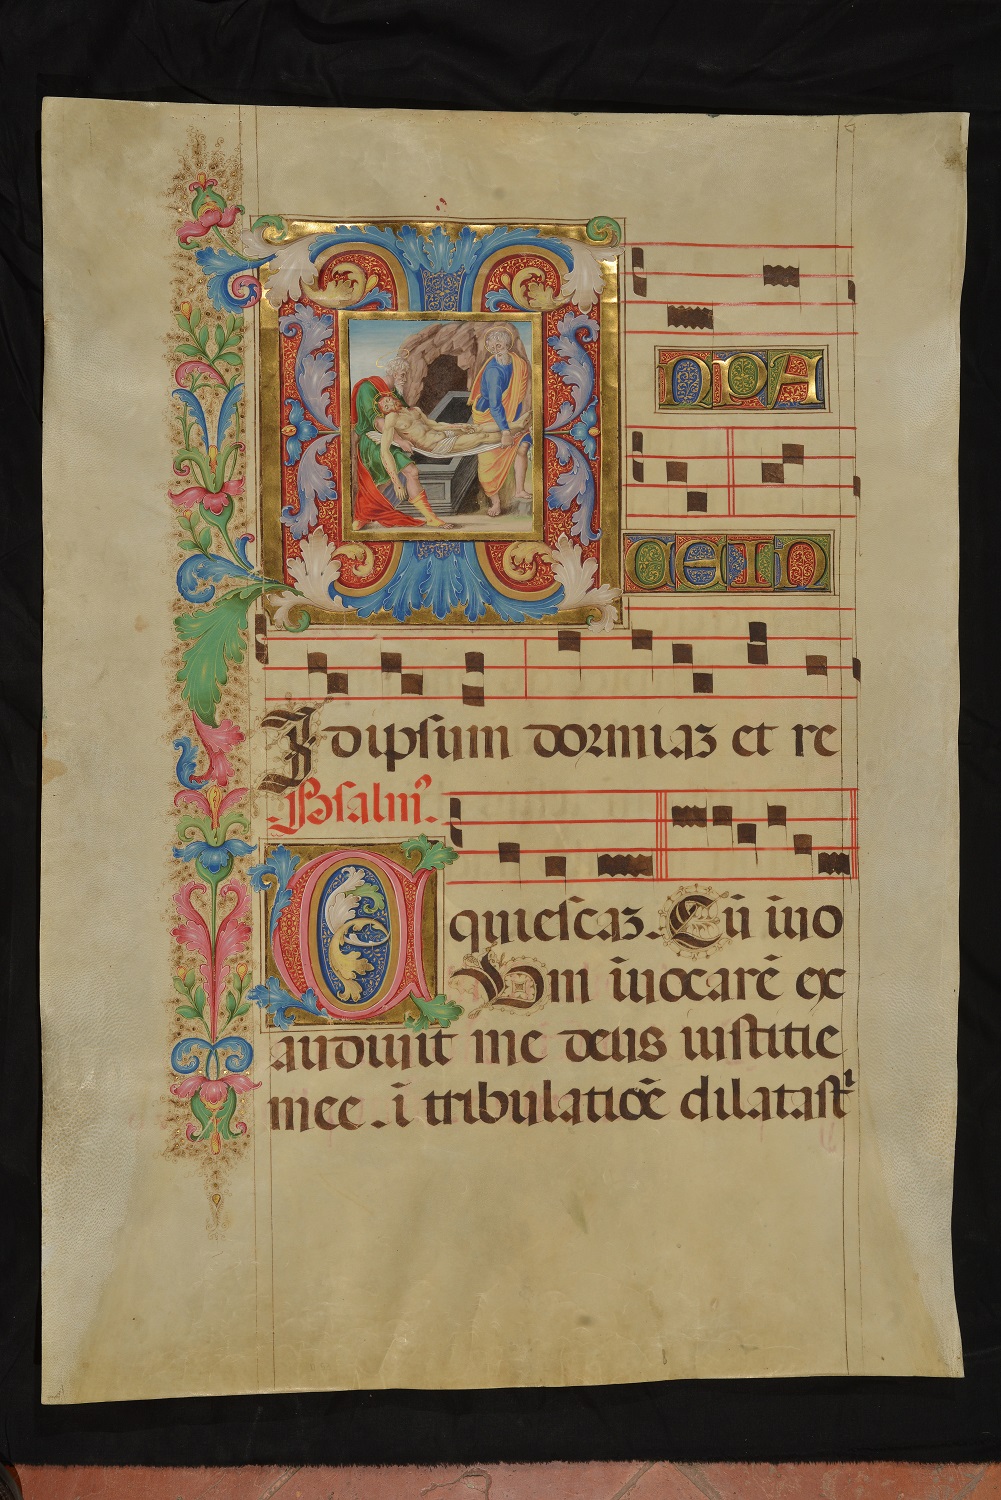 INPA
CEIN
Idipſum dormiaꝫ et re
Pſalm᷒.
quieſcaꝫ. Cū īuo
CVm īuocarē ex
audiuit me deus iuſtitie
mee. ī tribulatiōe dilataſtⁱ